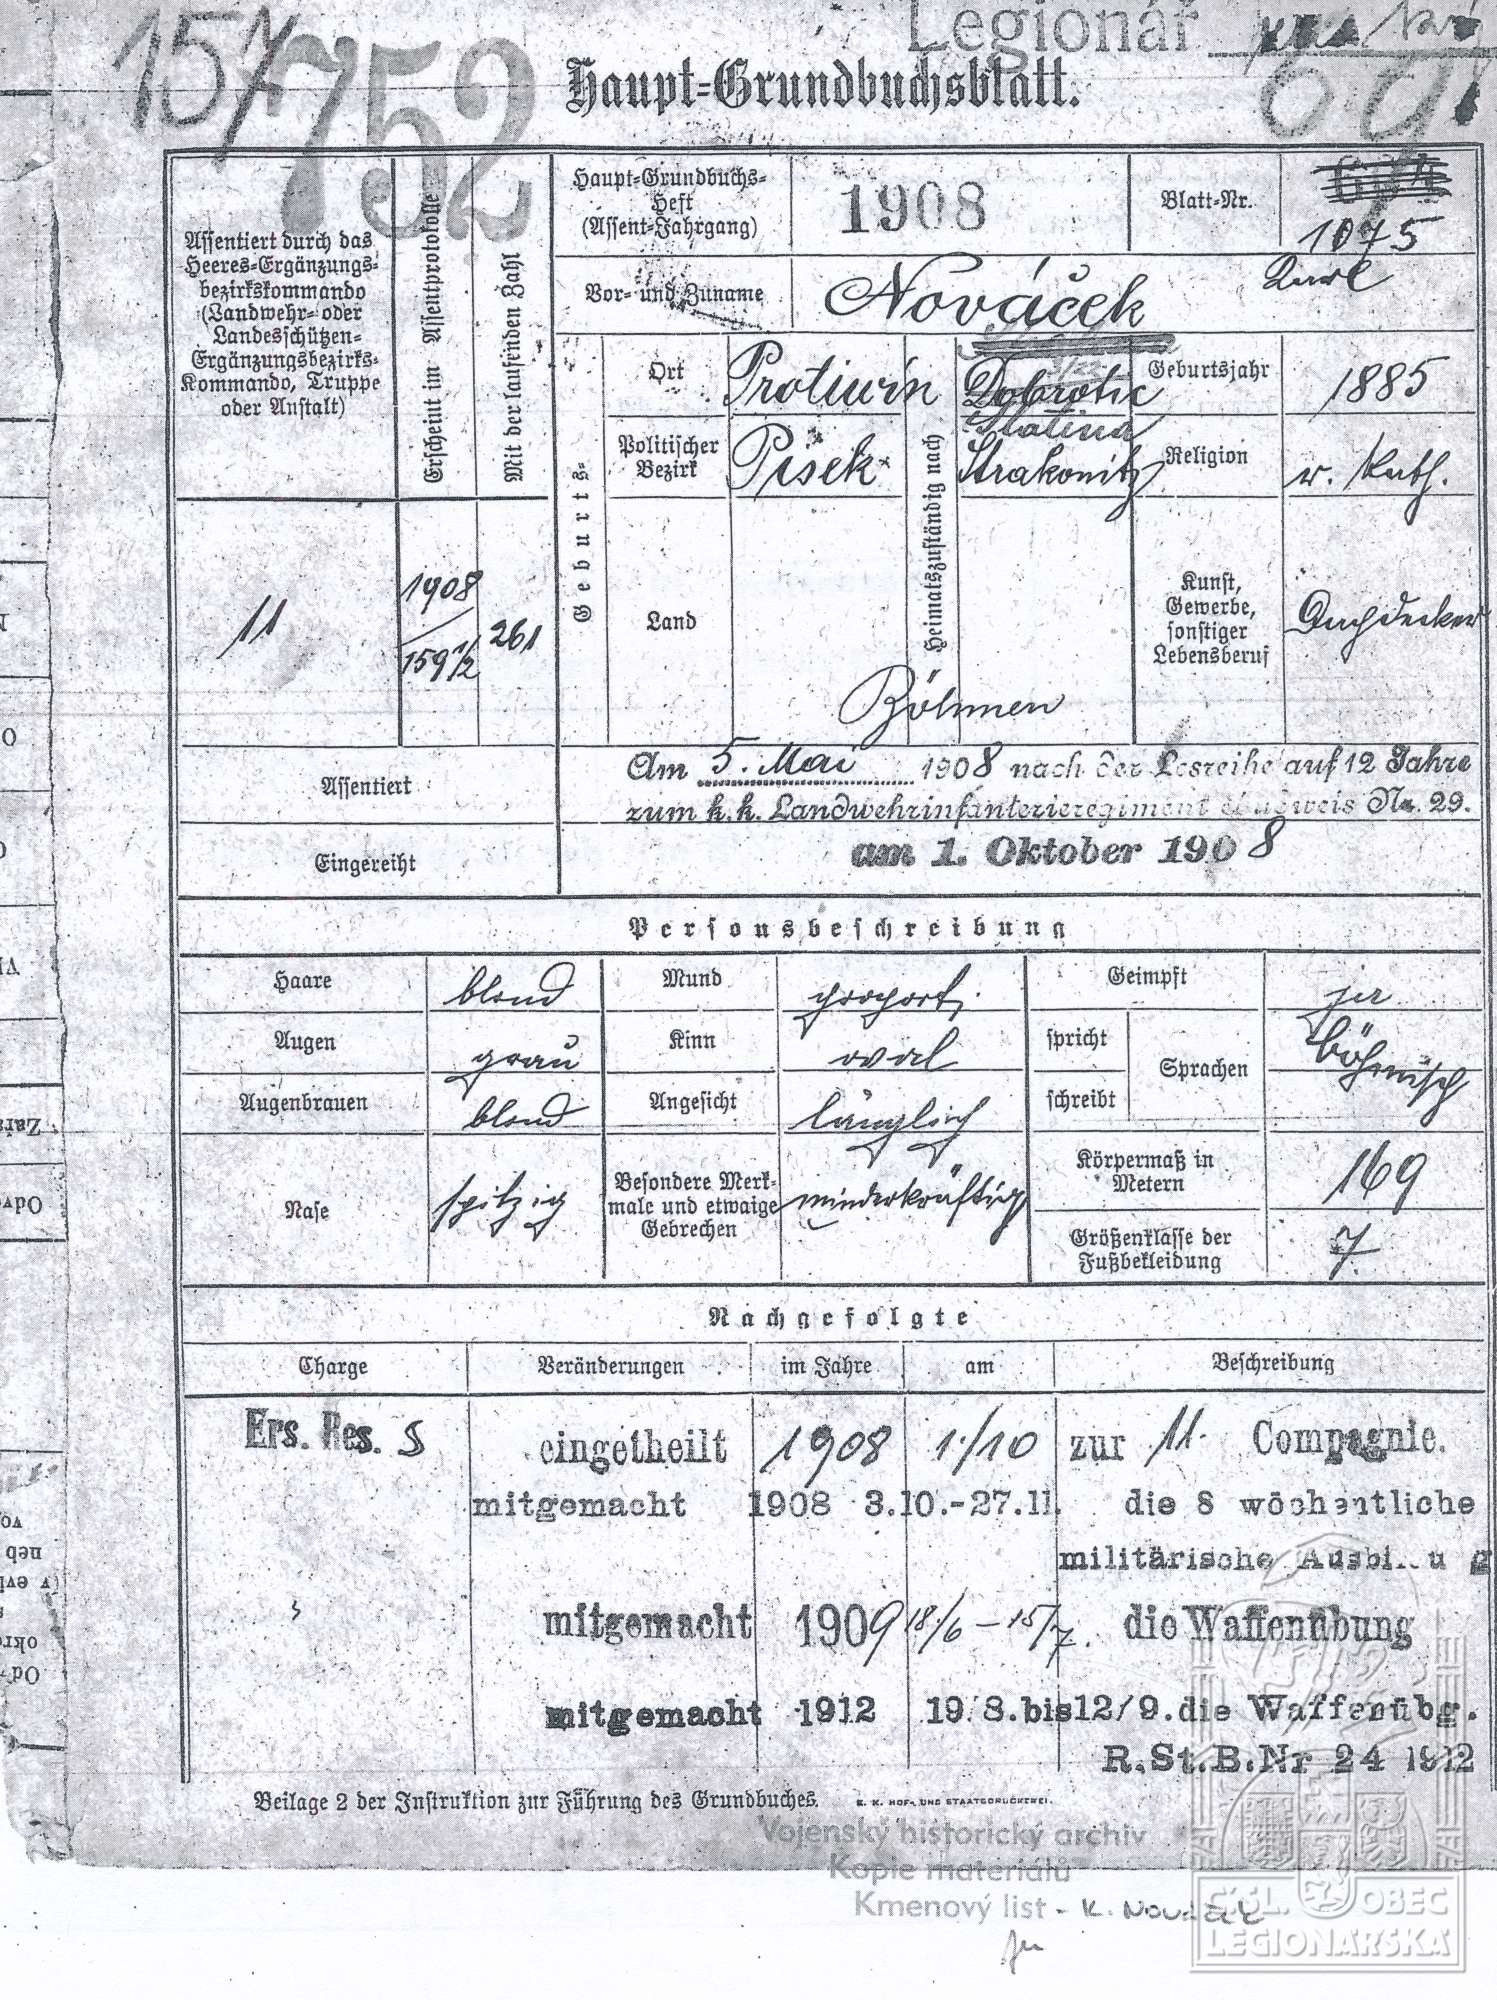 Legionář
157
752
69
Haupt-Grundbuchsblatt.
Assentiert durch das
Heeres-Ergänzungs-
bezirkskommando
(Landwehr- oder
Landesschützen-
Ergänzungsbezirks-
Kommando, Truppe
oder Anstalt)
Erscheint im Assentprotokolle
Mit der laufenden Zahl
Haupt-Grundbuchs-
Heft
(Assent-Jahrgang)
1908
Blatt-Nr.
1075
Vor- und Zuname
Nováček Karl
Geburts-
Ort
Protiwin
Heimatszuständig nach
Dobrotic
Slatina
Geburtsjahr
1885
Politischer
Bezirk
Pisek
Strakonitz
Religion
r. kath.
11
1908
159 1/2
261
Land
Böhmen
Kunst,
Gewerbe,
sonstiger
Lebensberuf
Dachdecker
Assentiert
Am 5. Mai 1908 nach der Losreihe auf 12 Jahre
zum k. k. Landwehrinfanterieregiment Budweis No. 29.
Eingereiht
am 1. Oktober 1908
Personsbeschreibung
Haare blond Mund proport. Geimpft ja
Augen grau Kinn oval spricht Sprachen böhmisch
Augenbrauen blond Angesicht länglich schreibt
Nase spitzig
Besondere Merk-
male und etwaige
Gebrechen
minderkräftig
Körpermaß in
Metern
169
Größenklasse der
Fußbekleidung
7.
Nachgefolgte
Charge Veränderungen im Jahre am Beschreibung
Ers. Res. eingetheilt 1908 1./10 zur 11. Compagnie.
mitgemacht 1908 3.10.-27.11. die 8 wöchentliche
militärische
mitgemacht 1909 18./6 - 15/7. die Waffenübung
mitgemacht 1912 19/8. bis 12/9. die Waffenübg.
R.St.B.Nr 24 1912
Beilage 2 der Instruktion zur Führung des Grundbuches. K. K. HOF- UND STAATSDRUCKEREI.
Vojenský historický archiv
Kopie materiálů
Kmenový list - K. Nováček
ČSL. OBEC
LEGIONÁŘSKÁ